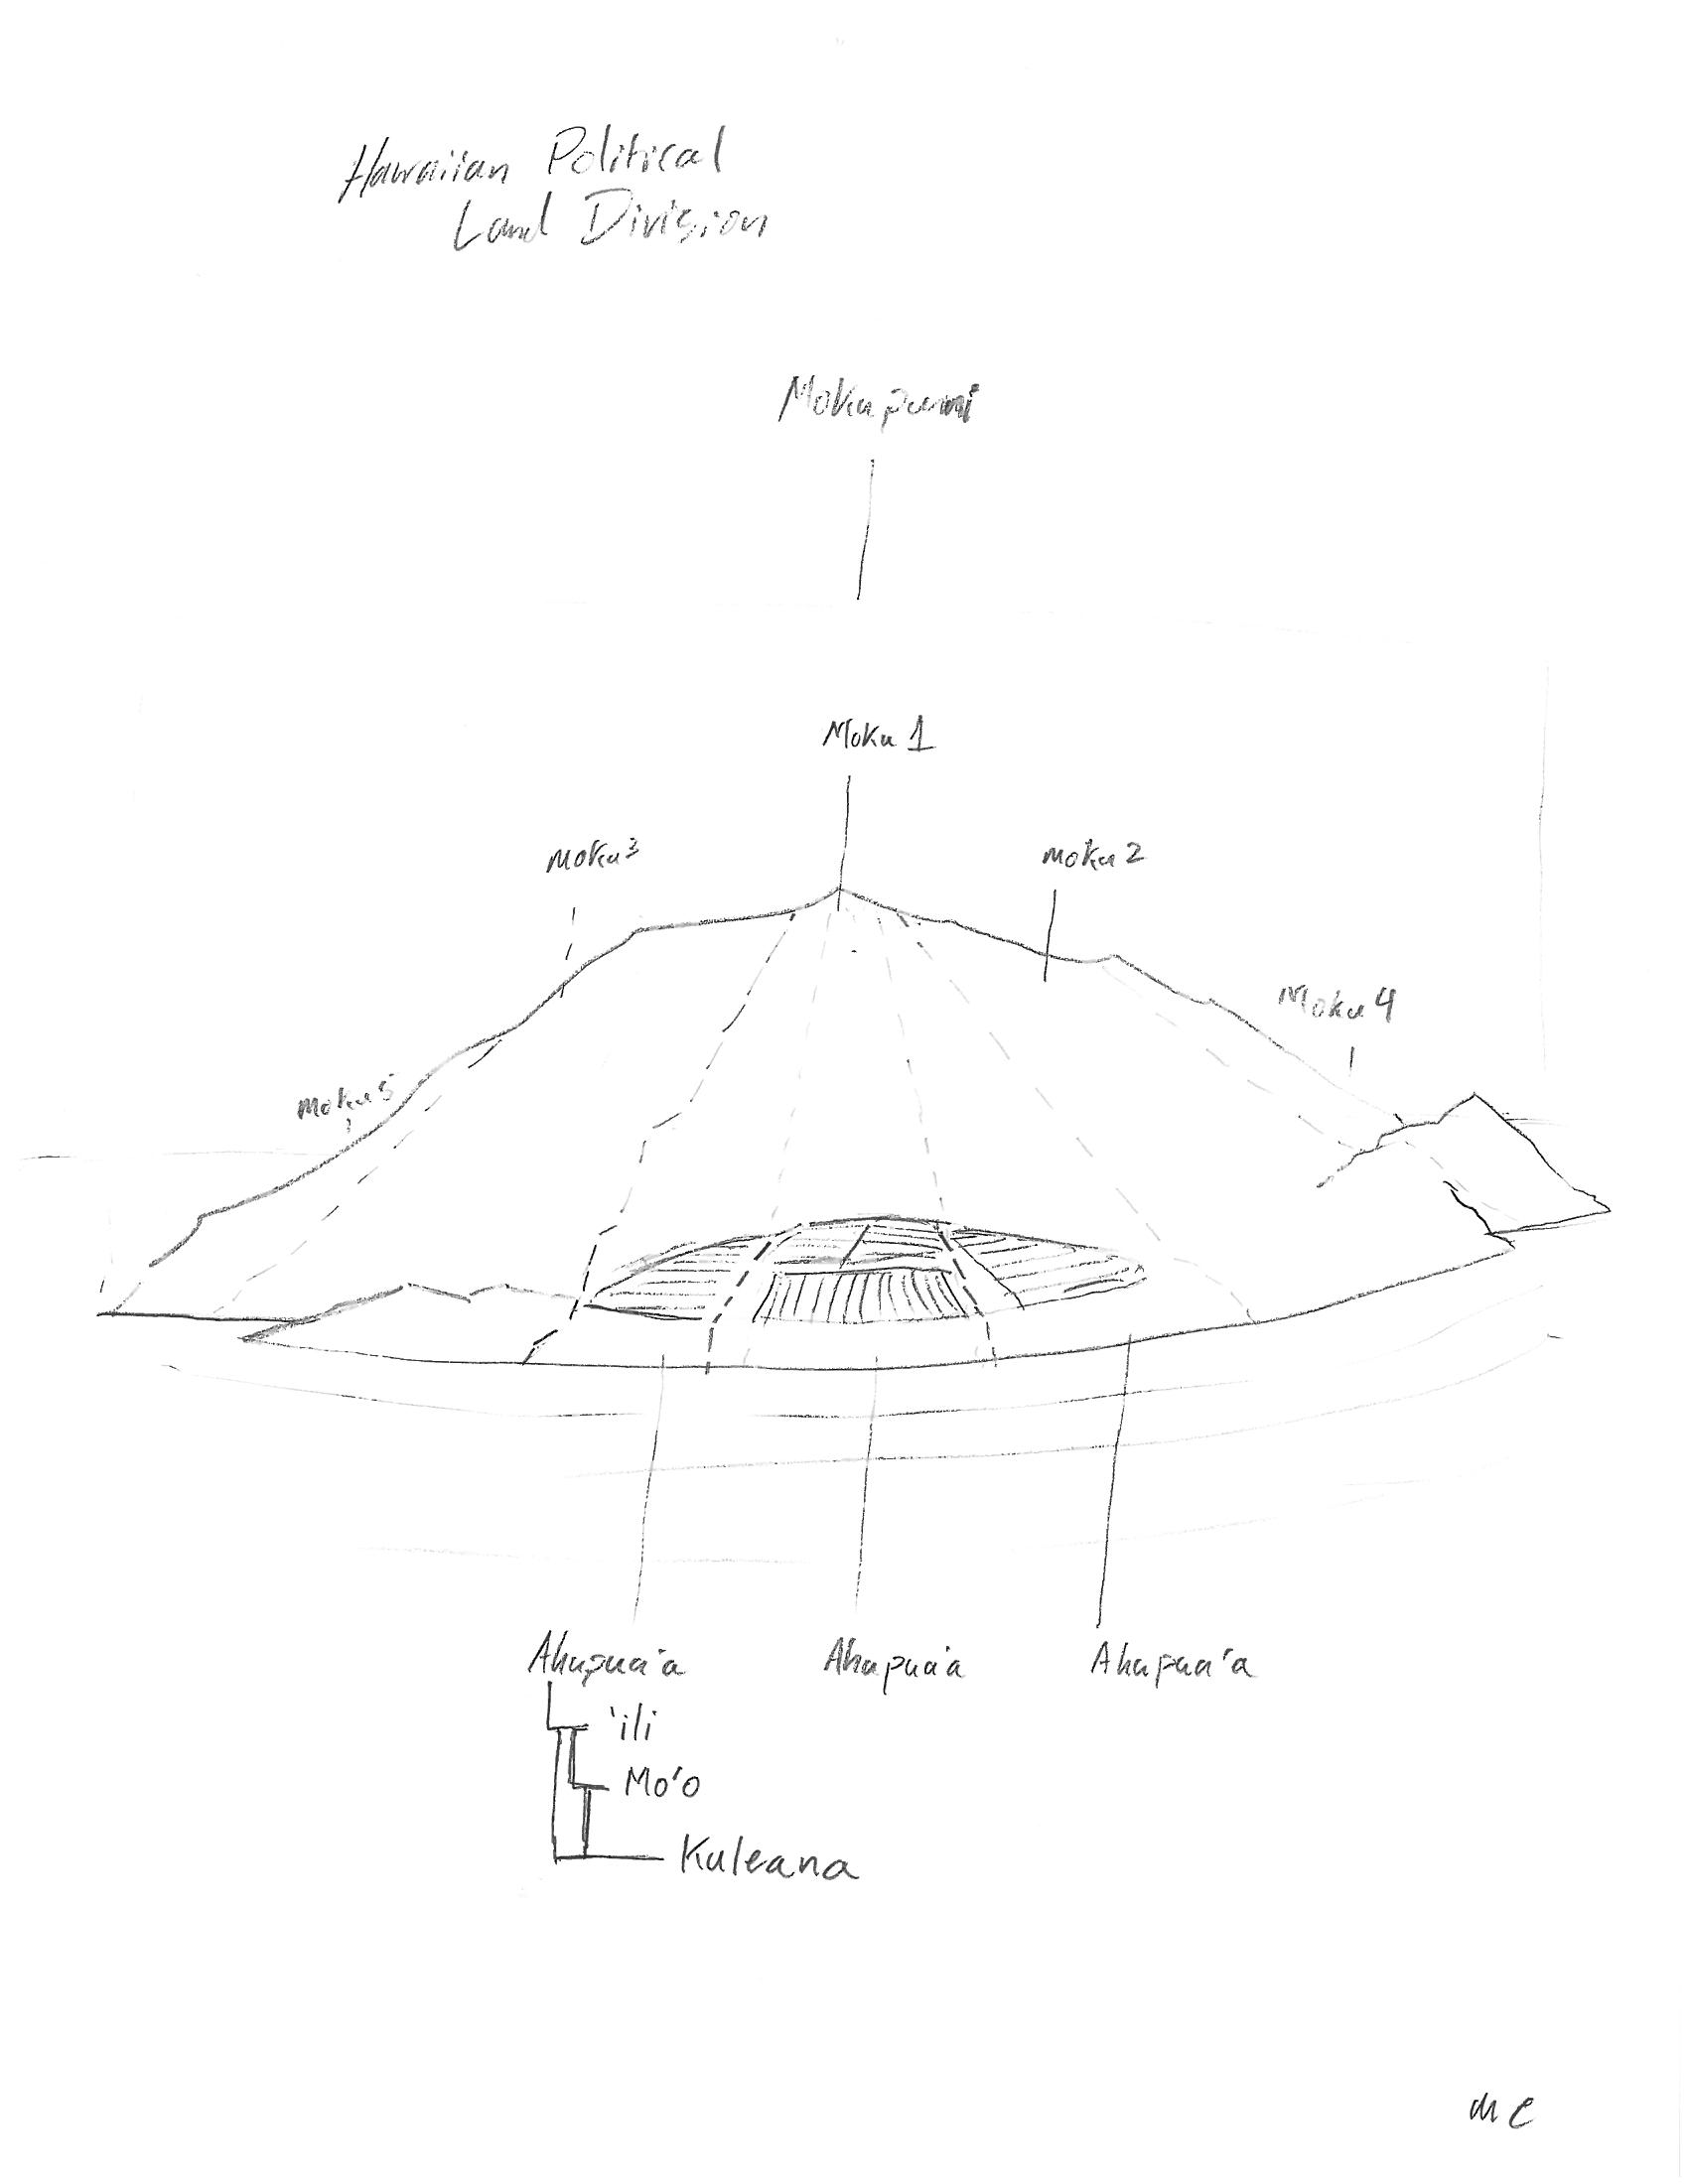 Hawaiian Political
Land Division
Mokupuni
Moku 1
Moku 3
Moku 2
Moku 4
Moku 5
Ahupua'a
Ahupua'a
Ahupua'a
'ili
Mo'o
Kuleana